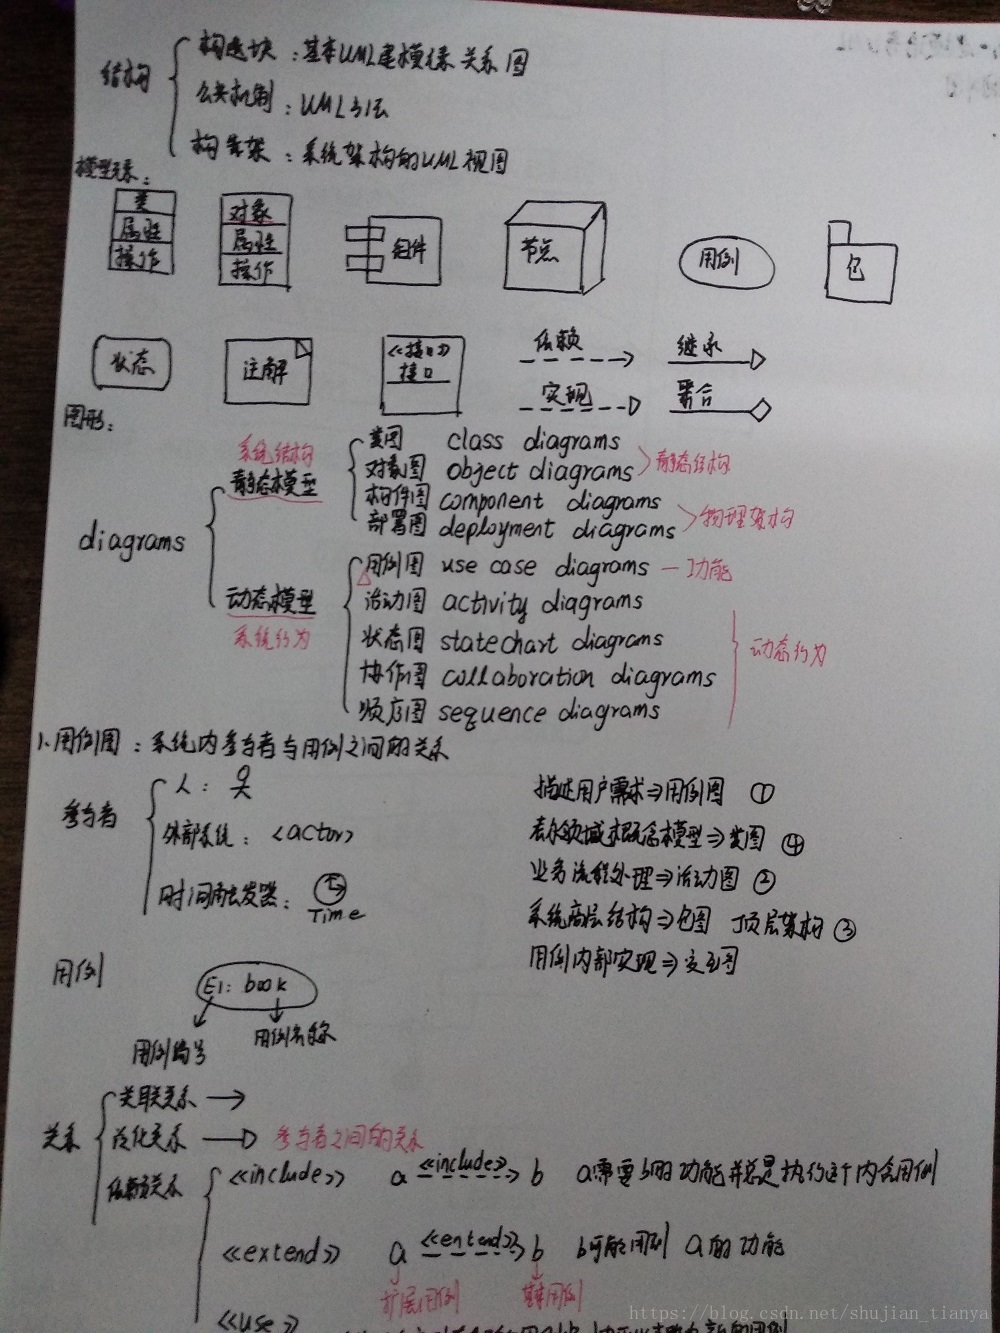 结构
构造块：基本UML建模元素 关系 图
公共机制：UML方法
构架：系统架构的UML视图
模型元素：
类
属性
操作
对象
属性
操作
组件
节点
用例
包
状态
注解
<<接口>>
接口
依赖
继承
实现
聚合
图形：
diagrams
系统结构
静态模型
类图 class diagrams
对象图 object diagrams
静态结构
构件图 component diagrams
部署图 deployment diagrams
物理架构
动态模型
系统行为
用例图 use case diagrams — 功能
活动图 activity diagrams
状态图 statechart diagrams
协作图 collaboration diagrams
顺序图 sequence diagrams
动态行为
1.用例图：系统内参与者与用例之间的关系
参与者
人：
外部系统：<actor>
时间触发器：
Time
描述用户需求⇒用例图 ①
表示领域概念模型⇒类图 ④
业务流程处理⇒活动图 ②
系统高层结构⇒包图 顶层架构 ③
用例内部实现⇒交互图
用例
E1: book
用例编号
用例名称
关系
关联关系 →
泛化关系
参与者之间的关系
依赖关系
<<include>> a <<include>> b a需要b的功能并总是执行这个内含用例
<<extend>> a <<entend>> b b可能用到a的功能
扩展用例
基本用例
<<use>>
https://blog.csdn.net/shujian_tianya